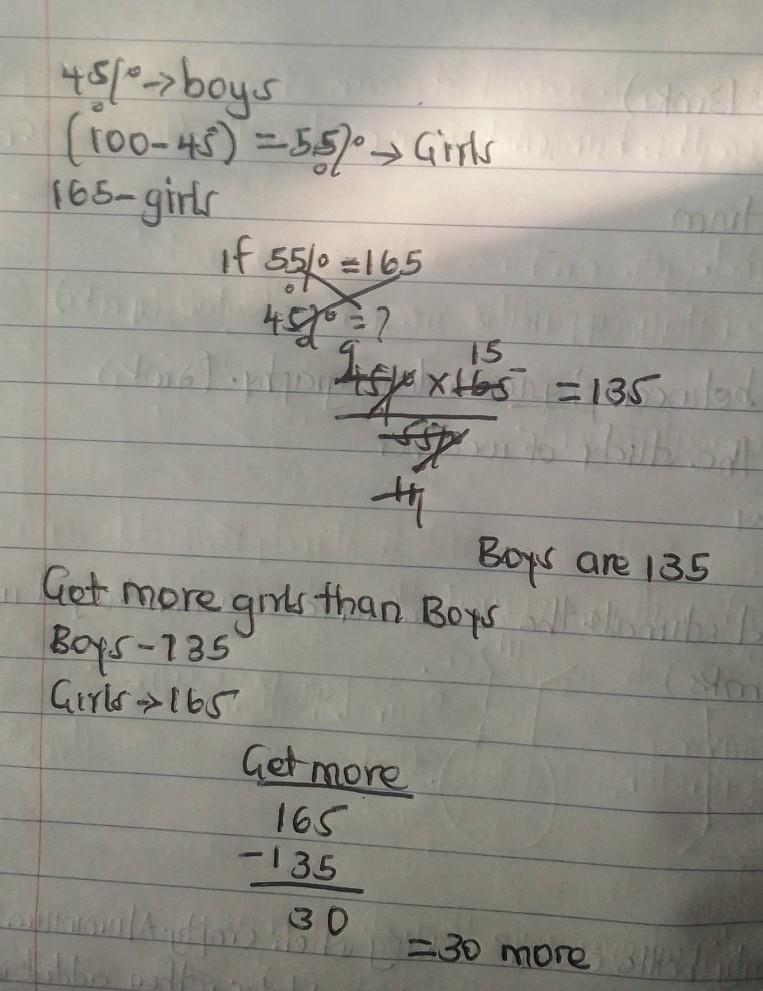 45% → boys
(100 - 45) = 55% → Girls
165 - girls
If 55% = 165
45% = ?
9 15
45% × 165 = 135
55%
11
Boys are 135
Get more girls than Boys
Boys - 135
Girls → 165
Get more
165
-135
30
= 30 more